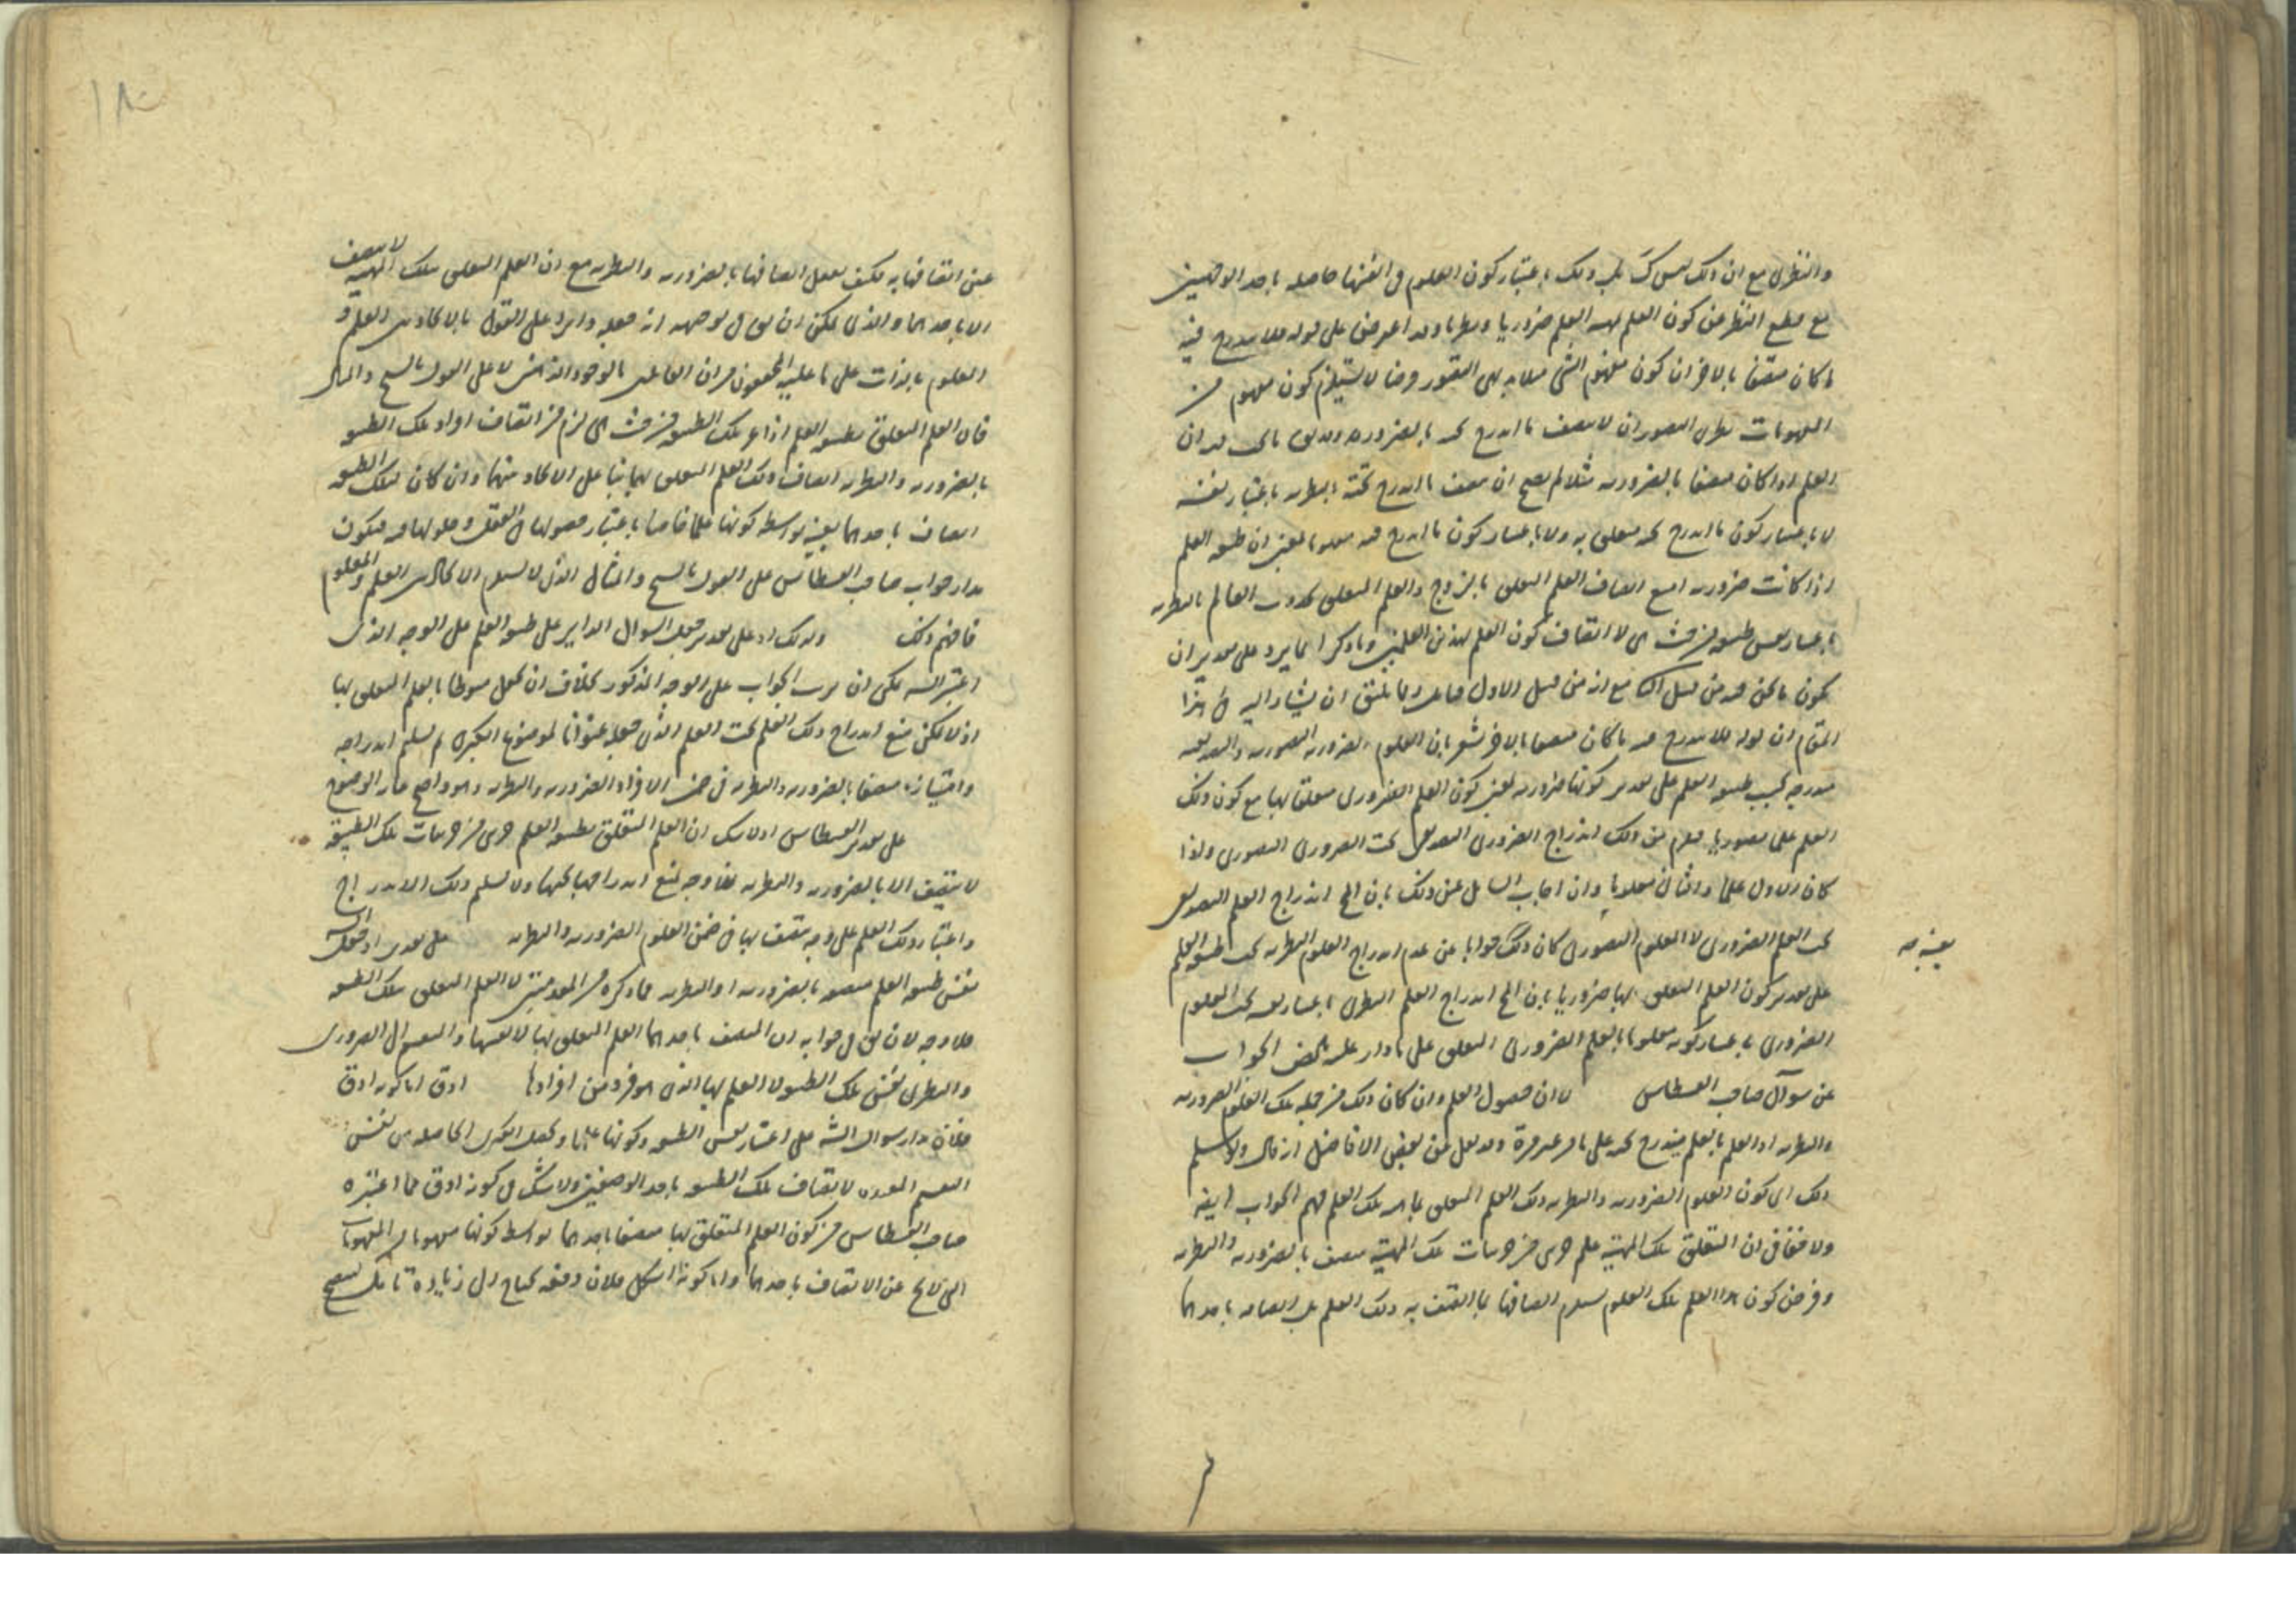 والنظرى مع ان ذلك ليس كك بل ذلك باعتبار كون العلوم فى انفسها حاصله باحد الوجهين
مع قطع النظر عن كون العلم بهذه العلم ضروريا ونظريا وقد اعترض على قوله فلا يندرج فيه
ما كان متصفا بالاخر ان كون مفهوم الشى مثلا بديهى التصور وضا لا يستلزم كون مفهوم من
المفهومات نظرى التصور ان لا يتصف ما اندرج تحته بالضرورة
العلم اذا كان متصفا بالضرورية مثلا لم يصح ان يتصف ما اندرج تحته بالنظرية باعتبار نفسه
لا باعتبار كون ما اندرج تحته متعلق به ولا باعتبار كون ما اندرج فيه معلوما بمعنى ان طبيعة العلم
اذا كانت ضرورية امتنع اتصاف العلم المتعلق بالزوج والعلم المتعلق بحدوث العالم بالنظرية
باعتبار نفس طبيعة من حيث هى لا اتصاف كون العلم بهذين العلمين وما ذكر انما يرد على تقدير ان
يكون ما نحن فيه من قبيل الثانى مع انه من قبيل الاول ومما ينبغى ان يشار اليه فى هذا
المقام ان قوله فلا يندرج فيه ما كان متصفا بالاخر يشعر بان العلوم الضرورية التصورية والتصديقية
مندرجه تحت طبيعة العلم على تقدير كونها ضرورية بمعنى كون العلم الضرورى متعلقا بها مع كون ذلك
العلم علما تصوريا فلزم من ذلك اندراج الضرورى التصديقى تحت الضرورى التصورى ولذا
كان الاول علما والثانى معلوما وان اجاب السائل عن ذلك بان المح اندراج العلم التصديقى
تحت العلم الضرورى لا المعلوم التصورى كان ذلك جوابا عن عدم اندراج العلوم النظرية تحت طبيعة العلم
بعينه صح
على تقدير كون العلم المتعلق بها ضروريا بان المح اندراج العلم النظرى باعتبار تحت المعلوم
الضرورى باعتبار كونه معلوما بالعلم الضرورى المتعلق على ما دار عليه الجواب
عن سوال صاحب القسطاس لان حصول العلم وان كان ذلك من جمله تلك العلوم الضرورية
والنظرية اذ العلم بالعلم يندرج تحته على ما مر غير مرة وقد نقل عن بعض الافاضل انه قال ولا نسلم
ذلك اى كون العلوم الضرورية والنظرية ذلك العلم المتعلق بماهية تلك العلم فهم الجواب ايضه
ولا خفاء فى ان المتعلق بتلك المهية علم جزى من جزئيات تلك المهية متصف بالضرورية والنظرية
وفرض كون هذا العلم تلك العلوم يستلزم اتصافها بما اتصف به ذلك العلم بل اتصافه باحدهما
١٨
عين اتصافها به فكيف يعقل اتصافها بالضرورية والنظرية مع ان العلم المتعلق بتلك المهية لا يتصف
الا باحدهما والذى يمكن ان يقال فى توجيهه انه جعله واردا على القول بالاتحاد بين العلم و
المعلوم بالذات على ما عليه المحققون من القائلين بالوجود الذهنى لا على القول بالشبح والمثال
فان العلم المتعلق بطبيعة العلم اذا عين تلك الطبيعة من حيث هى لزم من اتصاف افراد تلك الطبيعة
بالضرورية والنظرية اتصاف ذلك العلم المتعلق بهما بناء على الاتحاد منهما وان كان لتلك الطبيعة
اتصاف باحدهما بعينه بواسطة كونها علما خاصا باعتبار حصولها فى العقل وحلولها فيه فيكون
مدار جواب صاحب القسطاس على القول بالشبح والمثال الذى لا يستلزم الاتحاد بين العلم والمعلوم
فافهم ذلك وذلك اذ على تقدير جعل السوال الداير على طبيعة العلم على الوجه الذى
اعتبر السيد يمكن ان يرتب الجواب على الوجه المذكور بخلاف ان يجعل منوطا بالعلم المتعلق بها
اذ لا يمكن منع اندراج ذلك العلم تحت العلم الذى جعله عنوانا لموضوع الكبرى ثم تسليم اندراجه
وامتيازه متصفا بالضرورية والنظرية فى ضمن الافراد الضرورية والنظرية وهو واضح غاية الوضوح
على تقدير القسطاس اذ لا شك ان العلم المتعلق بطبيعة العلم جزى من جزئيات تلك الطبيعة
لا يتصف الا بالضرورية والنظرية فلا وجه لمنع اندراجها تحتها ولا تسلم ذلك الاندراج
واعتبار ذلك العلم على وجه يتصف بها فى ضمن العلوم الضرورية والنظرية على تقدير السيد اذ جعل
نفس طبيعة العلم متصفة بالضرورية او النظرية فما ذكره من المقدمتين لا العلم المتعلق بتلك الطبيعة
فلا وجه لان يقال فى جوابه ان المتصف باحدهما العلم المتعلق بها لا نفسها والتقسيم الى الضرورى
والنظرى لنفس تلك الطبيعة لا العلم بها الذى هو فرد من افرادها ادق اما كونه ادق
فلان مدار سوال السيد على اعتبار نفس الطبيعة وكونها علما وتجعل الكبرى الحاصله من نفس
التقسيم المورده لاتصاف تلك الطبيعة باحد الوصفين ولا شك فى كونه ادق مما اعتبره
صاحب القسطاس من كون العلم المتعلق بها متصفا باحدهما بواسطة كونها مفهوما من المفهومات
التى لا تخ عن الاتصاف باحدهما واما كونه اشكل فلان دفعه يحتاج الى زيادة تامل لتصحيح